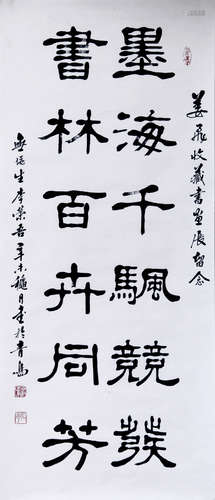 姜飛收藏書畫展留念
墨海千颿競發
書林百卉同芳
生李榮吾辛未穐月書於青島